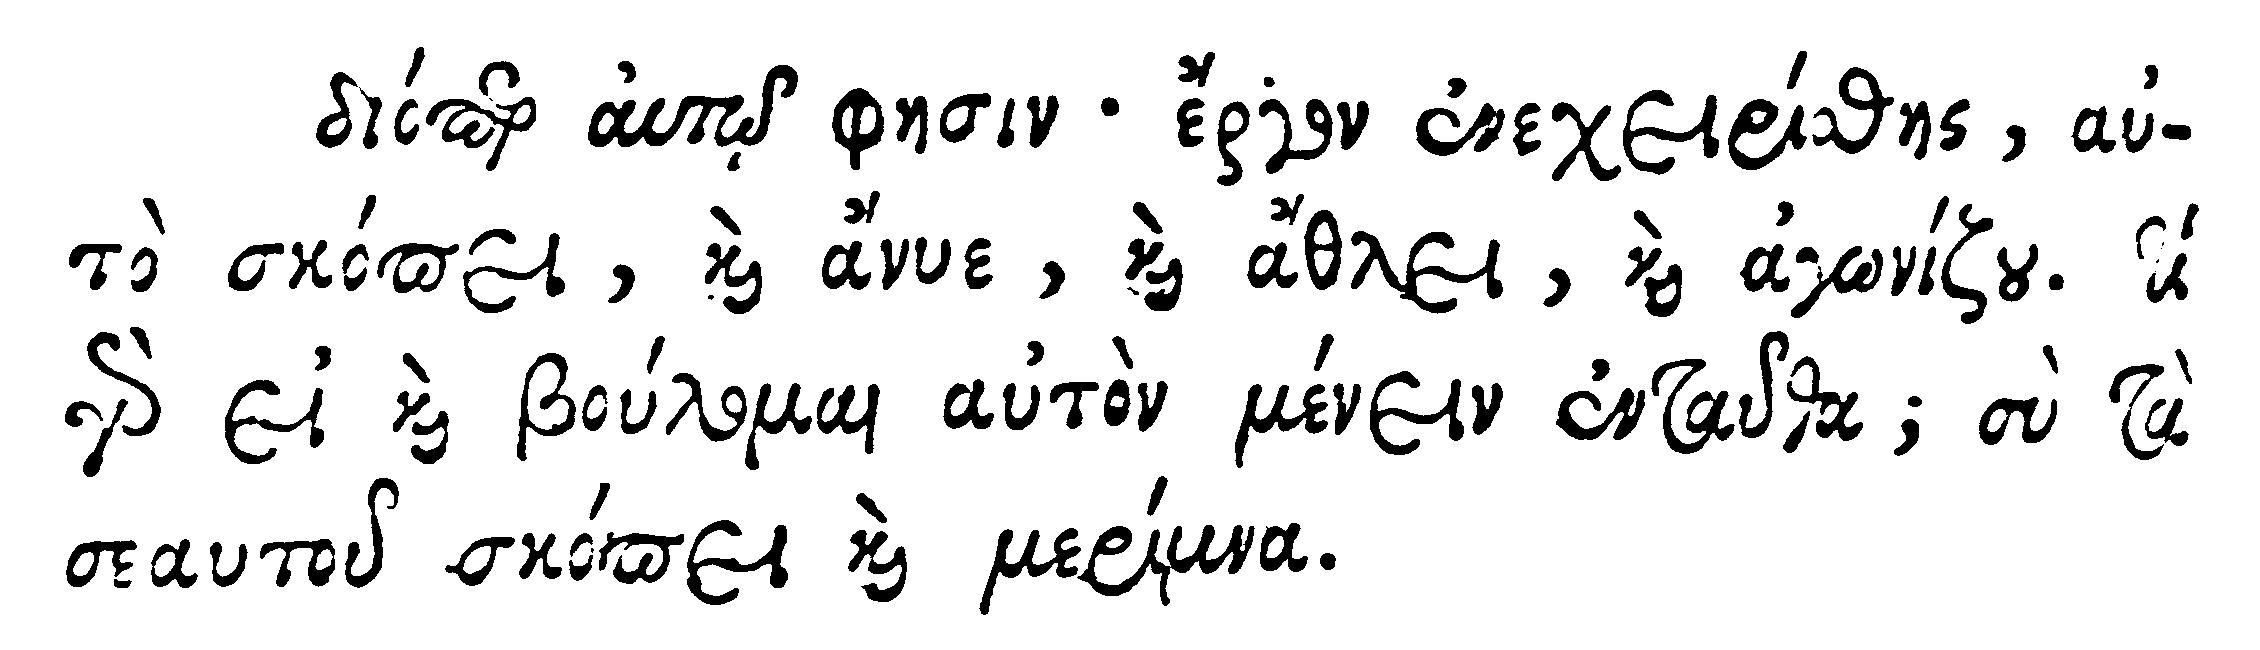 διόπερ αὐτῷ φησιν · ἔργον ἐνεχειρίθης, αὐ-
τὸ σκόπει, καὶ ἄνυε, καὶ ἄθλει, καὶ ἀγωνίζου. τί
γὰρ εἰ καὶ βούλομαι αὐτὸν μένειν ἐνταῦθα; σὺ τὰ
σεαυτοῦ σκόπει καὶ μερίμνα.